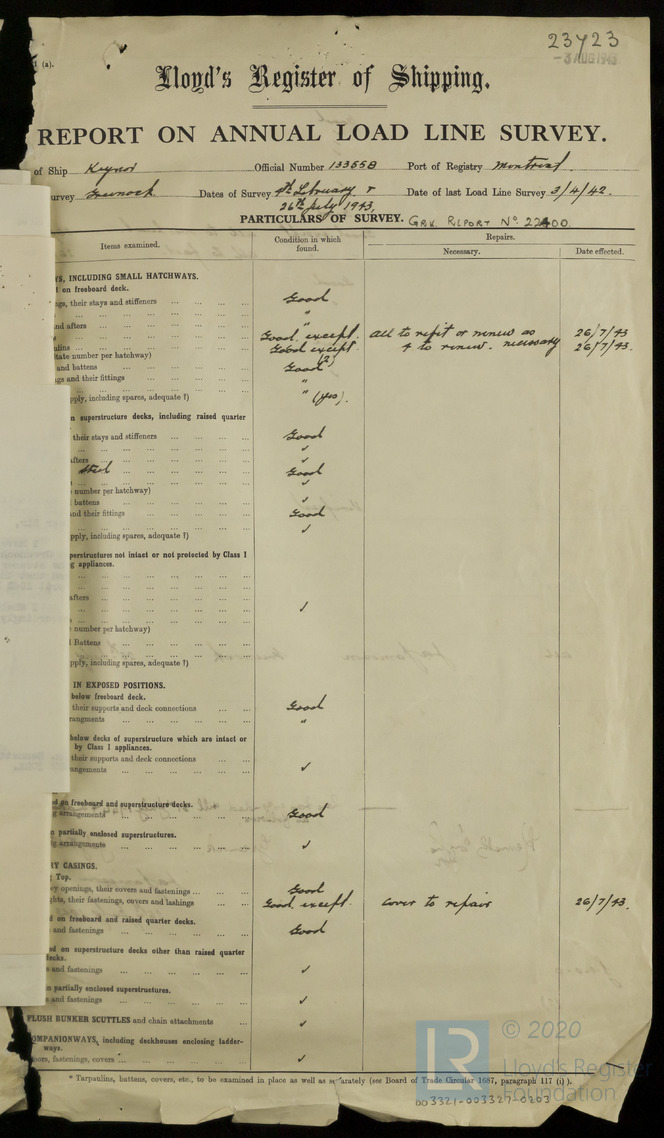 23423
-3 AUG 1943
(a).
Lloyd's Register of Shipping.
REPORT ON ANNUAL LOAD LINE SURVEY.
of Ship Keynor Official Number 133558 Port of Registry Montreal.
urvey Greenock Dates of Survey 4th February & Date of last Load Line Survey 3/4/42.
26th July 1943,
PARTICULARS OF SURVEY. GRK. REPORT No 22400.
Items examined. Condition in which found. Repairs.
Necessary. Date effected.
YS, INCLUDING SMALL HATCHWAYS.
on freeboard deck.
ngs, their stays and stiffeners ... ... ... ... Good
"
nd afters ... ... ... ... "
Good except. all to refit or renew as 26/7/43
ulins Good except 4 to renew. necessary 26/7/43.
tate number per hatchway) (2)
and battens ... ... ... Good
gs and their fittings ... ... ... "
pply, including spares, adequate ?) " (yes).
n superstructure decks, including raised quarter
their stays and stiffeners ... ... ... ... Good
✓
afters ... ... ... ✓
steel Good
✓
number per hatchway)
battens ... ... ... ✓
and their fittings ... ... ... Good
pply, including spares, adequate ?) ✓
perstructures not intact or not protected by Class I
g appliances.
afters ... ... ...
✓
number per hatchway)
l Battens ... ... ...
pply, including spares, adequate ?)
IN EXPOSED POSITIONS.
below freeboard deck.
their supports and deck connections ... ... Good
rangments ... ... ... "
below decks of superstructure which are intact or
by Class I appliances.
their supports and deck connections ... ...
angements ... ... ... ✓
ed on freeboard and superstructure decks.
g arrangements ... ... ... Good
n partially enclosed superstructures.
g arrangements ... ... ... ✓
RY CASINGS.
Top.
ey openings, their covers and fastenings ... ... ... Good
ghts, their fastenings, covers and lashings ... ... Good except. Cover to repair 26/7/43.
d on freeboard and raised quarter decks.
and fastenings ... ... ... Good
ed on superstructure decks other than raised quarter
decks.
s and fastenings ... ... ... ✓
n partially enclosed superstructures.
s and fastenings ... ... ... ✓
FLUSH BUNKER SCUTTLES and chain attachments ... ✓
OMPANIONWAYS, including deckhouses enclosing ladder-
ways.
oors, fastenings, covers ... ... ... ✓
* Tarpaulins, battens, covers, etc., to be examined in place as well as separately (see Board of Trade Circular 1687, paragraph 117 (i) ).
003321-003327-0203
LR © 2020
Lloyd's Register
Foundation